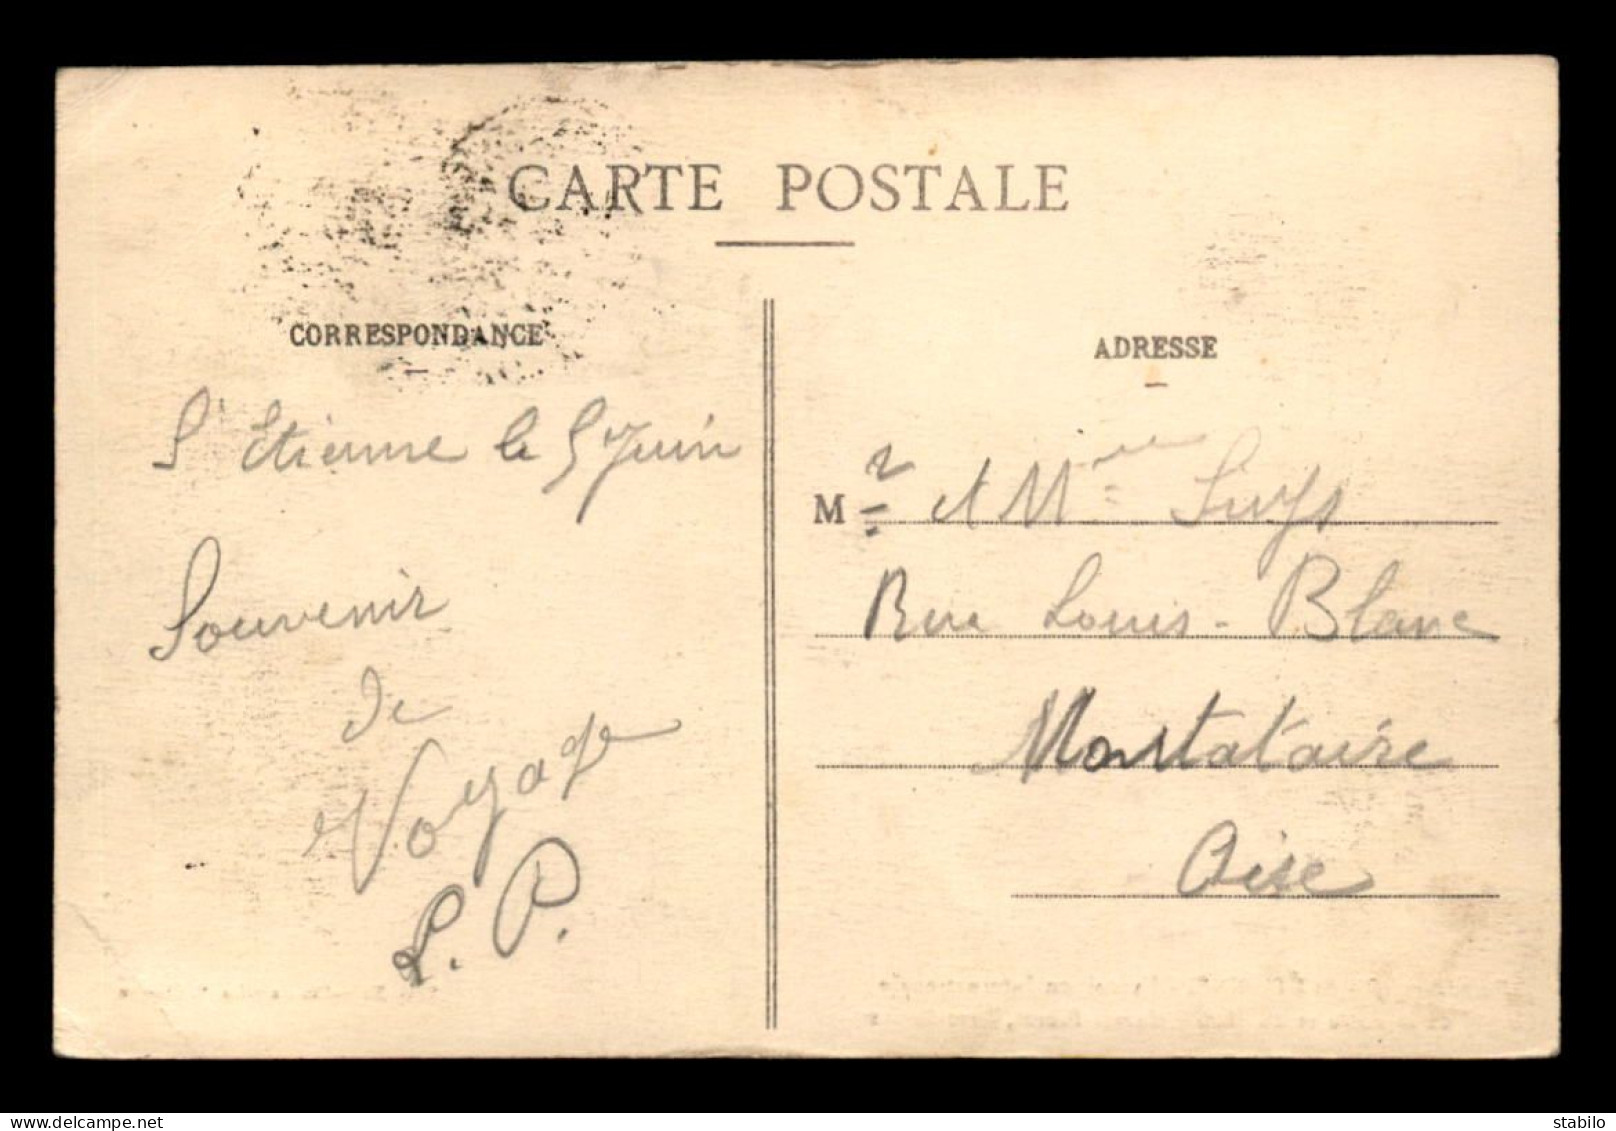 CARTE POSTALE
CORRESPONDANCE
St Etienne le 5 Juin
Souvenir
de
Voyage
L. P.
ADRESSE
Mr et Mme Luys
Rue Louis-Blanc
Montataire
Oise
delcampe.net
stabilo